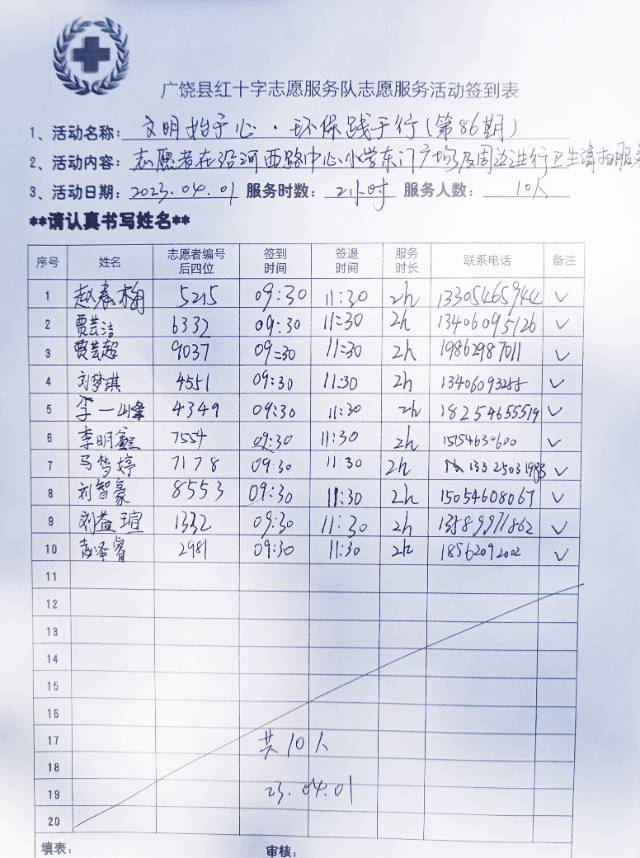 广饶县红十字志愿服务队志愿服务活动签到表
1、活动名称: 文明始于心·环保践于行(第86期)
2、活动内容: 志愿者在沿河西路中心小学东门广场及周边进行卫生清扫服务
3、活动日期: 2023.04.01 服务时数: 2小时 服务人数: 10人
**请认真书写姓名**
序号 姓名 志愿者编号后四位 签到时间 签退时间 服务时长 联系电话 备注
1 赵春梅 5215 09:30 11:30 2h 13305465944 ✓
2 贾芸洁 6332 09:30 11:30 2h 13406095126 ✓
3 贾芸超 9037 09:30 11:30 2h 19862987011 ✓
4 刘梦琪 4551 09:30 11:30 2h 13406093255 ✓
5 李一峰 4349 09:30 11:30 2h 18254655519 ✓
6 李明鑫 7554 09:30 11:30 2h 15154630600 ✓
7 马梦婷 7178 09:30 11:30 2h ✓
8 刘智豪 8553 09:30 11:30 2h 15054608067 ✓
9 刘益瑄 1332 09:30 11:30 2h 13589971862 ✓
10 赵泽睿 2981 09:30 11:30 2h 18562092002 ✓
11
12
13
14
15
16
17 共10人
18
19 23.04.01
20
填表: 审核: